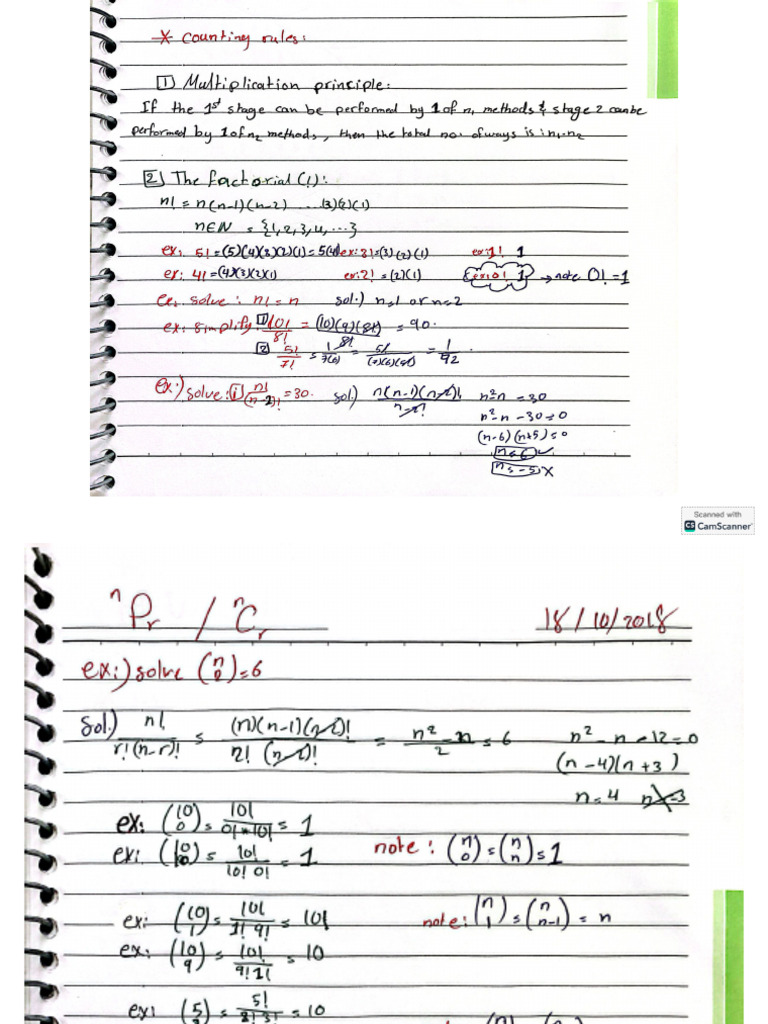 * Counting rules:
1 Multiplication principle:
If the 1st stage can be performed by 1 of n1 methods & stage 2 can be
performed by 1 of n2 methods, then the total no. of ways is: n1.n2
2 The factorial (!):
n! = n(n-1)(n-2) ... (3)(2)(1)
n∈N = {1,2,3,4,...}
ex: 5! = (5)(4)(3)(2)(1) = 5(4!) ex: 3! = (3)(2)(1) ex: 1! 1
ex: 4! = (4)(3)(2)(1) ex: 2! = (2)(1) ex: 0! 1 → note 0! = 1
ex. solve: n! = n sol:) n=1 or n=2
ex: simplify: 1 10!/8! = (10)(9)(8!)/8! = 90.
2 5!/7! = = 5!/(7)(6)(5!) = 1/92
ex:) solve: i n!/(n-2)! = 30. sol:) n(n-1)(n-2)!/n-2! n²-n = 30
n²-n-30=0
(n-6)(n+5)=0
n=6 ✓
n=-5 X
Scanned with
CS CamScanner
nPr / nCr 18/10/2018
ex:) solve (n 2) = 6
Sol.) n!/r!(n-r)! = (n)(n-1)(n-2)!/2! (n-2)! = n²-n/2 = 6 n²-n-12=0
(n-4)(n+3)
n=4 n=-3
ex: (10 0) = 10!/0!*10! = 1
ex: (10 10) = 10!/10! 0! = 1 note: (n 0) = (n n) = 1
ex: (10 1) = 10!/1! 9! = 10! note: (n 1) = (n n-1) = n
ex: (10 9) = 10!/9! 1! = 10
ex: = 5!/2! 3! = 10